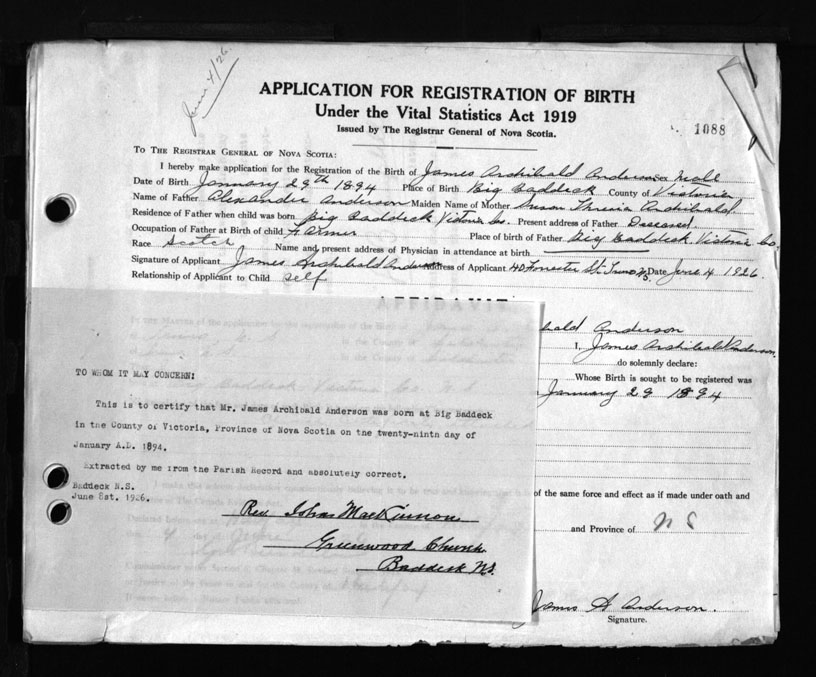 June 4/26
APPLICATION FOR REGISTRATION OF BIRTH
Under the Vital Statistics Act 1919
Issued by The Registrar General of Nova Scotia.
1088
TO THE REGISTRAR GENERAL OF NOVA SCOTIA:
I hereby make application for the Registration of the Birth of James Archibald Anderson Sex Male
Date of Birth January 29th 1894 Place of Birth Big Baddeck County of Victoria
Name of Father Alexander Anderson Maiden Name of Mother Susan Archibald
Residence of Father when child was born Big Baddeck Victoria Co. Present address of Father Deceased.
Occupation of Father at Birth of child Farmer Place of birth of Father Big Baddeck Victoria Co.
Race Scotch Name and present address of Physician in attendance at birth
Signature of Applicant James Archibald Anderson Address of Applicant 40 Forrester St. Truro N.S. Date June 4 1926.
Relationship of Applicant to Child self
AFFIDAVIT
bald Anderson
I, James Archibald Anderson,
do solemnly declare:
Whose Birth is sought to be registered was
January 29 1894
of the same force and effect as if made under oath and
and Province of N S
James A Anderson.
Signature.
TO WHOM IT MAY CONCERN:
This is to certify that Mr. James Archibald Anderson was born at Big Baddeck
in the County of Victoria, Province of Nova Scotia on the twenty-ninth day of
January A.D. 1894.
Extracted by me from the Parish Record and absolutely correct.
Baddeck N.S.
June 8st. 1926.
Rev John MacKinnon
Greenwood Church
Baddeck NS.